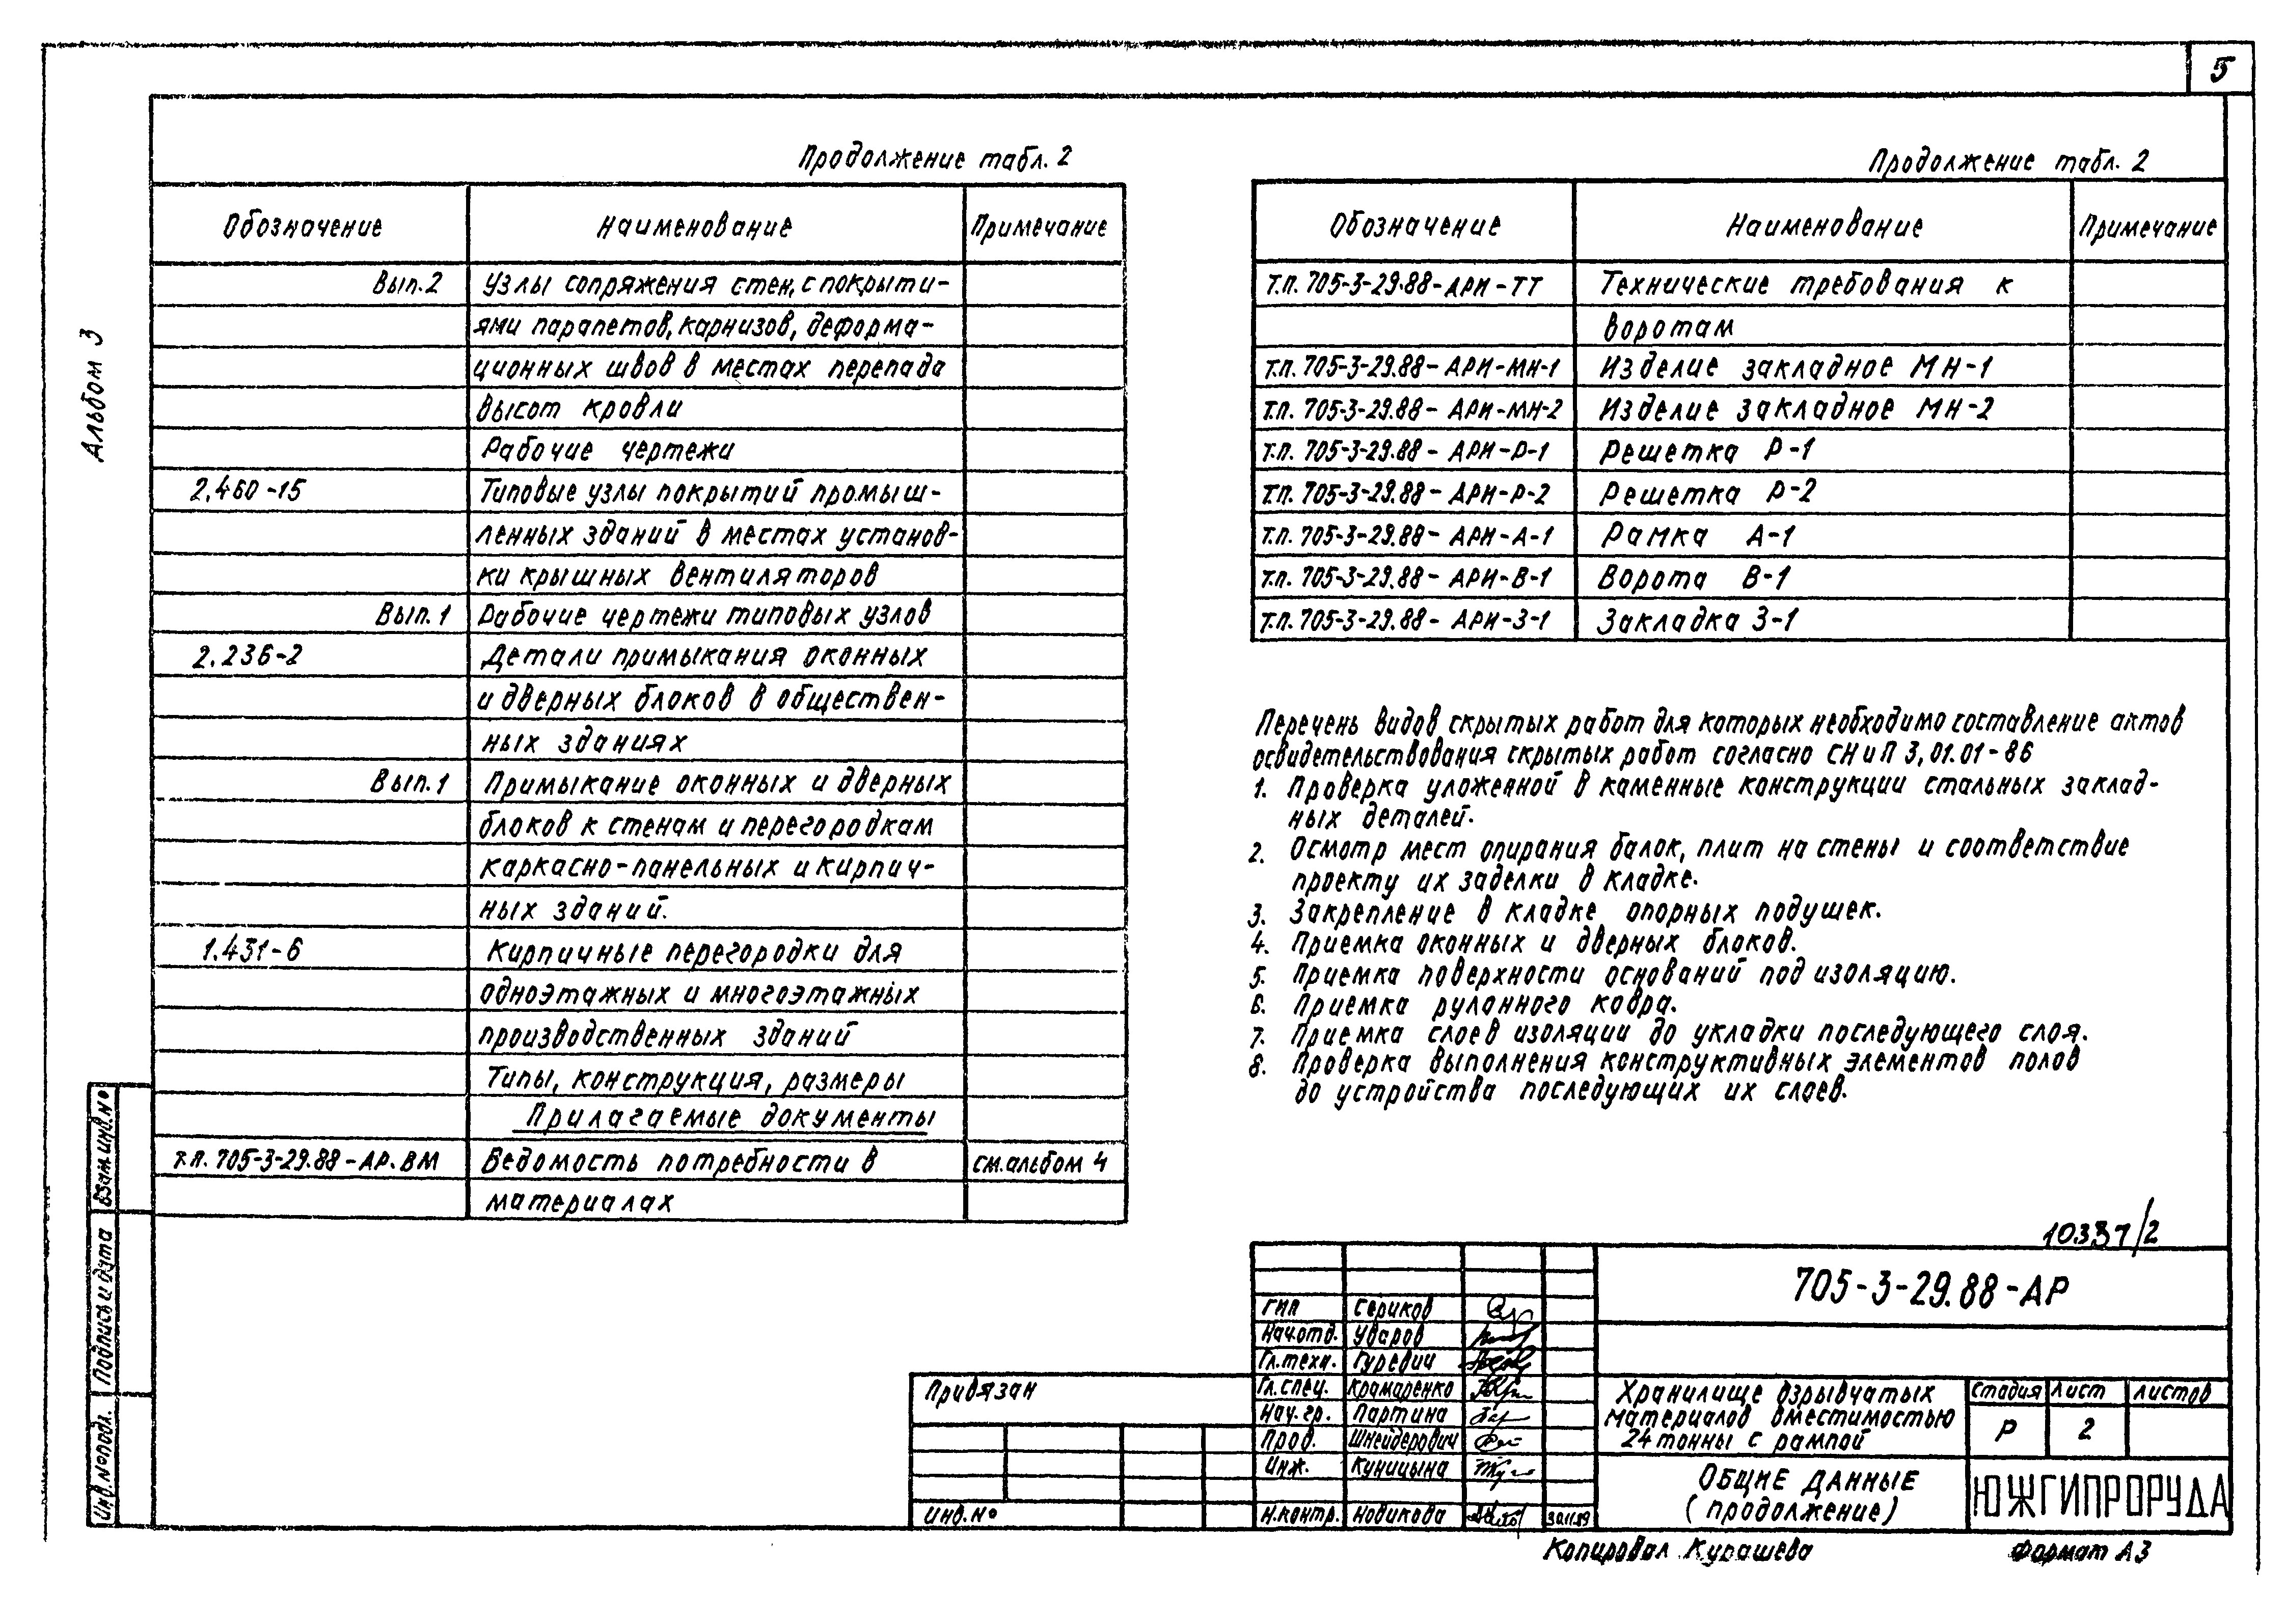 5
Альбом 3
Продолжение табл. 2
Обозначение Наименование Примечание
Вып. 2 Узлы сопряжения стен, с покрыти-
ями парапетов, карнизов, деформа-
ционных швов в местах перепада
высот кровли
Рабочие чертежи
2.460-15 Типовые узлы покрытий промыш-
ленных зданий в местах установ-
ки крышных вентиляторов
Вып. 1 Рабочие чертежи типовых узлов
2.236-2 Детали примыкания оконных
и дверных блоков в обществен-
ных зданиях
Вып. 1 Примыкание оконных и дверных
блоков к стенам и перегородкам
каркасно-панельных и кирпич-
ных зданий.
1.431-6 Кирпичные перегородки для
одноэтажных и многоэтажных
производственных зданий
Типы, конструкция, размеры
Прилагаемые документы
т.п. 705-3-29.88-АР.ВМ Ведомость потребности в см.альбом 4
материалах
Продолжение табл. 2
Обозначение Наименование Примечание
т.п. 705-3-29.88-АРИ-ТТ Технические требования к
воротам
т.п. 705-3-29.88-АРИ-МН-1 Изделие закладное МН-1
т.п. 705-3-29.88-АРИ-МН-2 Изделие закладное МН-2
т.п. 705-3-29.88-АРИ-Р-1 Решетка Р-1
т.п. 705-3-29.88-АРИ-Р-2 Решетка Р-2
т.п. 705-3-29.88-АРИ-А-1 Рамка А-1
т.п. 705-3-29.88-АРИ-В-1 Ворота В-1
т.п. 705-3-29.88-АРИ-З-1 Закладка З-1
Перечень видов скрытых работ для которых необходимо составление актов
освидетельствования скрытых работ согласно СНиП 3,01.01-86
1. Проверка уложенной в каменные конструкции стальных заклад-
ных деталей.
2. Осмотр мест опирания балок, плит на стены и соответствие
проекту их заделки в кладке.
3. Закрепление в кладке опорных подушек.
4. Приемка оконных и дверных блоков.
5. Приемка поверхности оснований под изоляцию.
6. Приемка рулонного ковра.
7. Приемка слоев изоляции до укладки последующего слоя.
8. Проверка выполнения конструктивных элементов полов
до устройства последующих их слоев.
10337/2
705-3-29.88-АР
ГИП Сериков
Нач.отд. Уваров
Гл.техн. Гуревич
Гл.спец. Крамаренко
Нач.гр. Партина
Пров. Шнейдерович
Инж. Куницына
Н.контр. Новикова 30.11.89
Хранилище взрывчатых
материалов вместимостью
24 тонны с рампой
Стадия Лист Листов
Р 2
ОБЩИЕ ДАННЫЕ
(продолжение)
ЮЖГИПРОРУДА
Привязан
Инв.№
Взам.инв.№
Подпись и дата
Инв.№подл.
Копировал Курашева
Формат А3